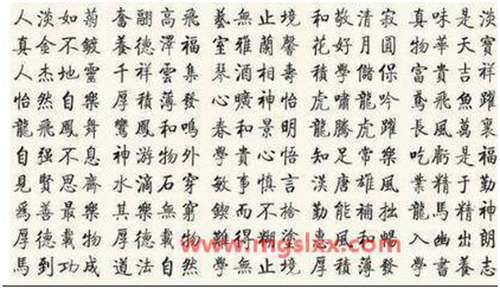 人淡如菊 奮翮高飛 藝無止境 和敬清寂 真味是淡
真金不鍍 養德澤福 室雅蘭馨 花好月圓 物華天寶
人杰地靈 千祥雲集 琴酒 壽 學儲 富貴吉祥
怡然自樂 厚積薄發 心曠神怡 虎嘯龍吟 鳶飛魚躍
龍飛鳳舞 鸞鳳和鳴 春和景明 龍騰虎躍 長風萬裏
自强不息 神游物外 學貴心悟 知足常樂 吃虧是福
見賢思齊 水滴石穿 敏事慎言 漢唐雄風 業精于勤
爲善最樂 其樂無窮 鍥而不捨 勤能補拙 龍馬精神
厚德載物 難得糊塗 惠風和暢 入幽出朗
馬到功成 道法自然 學無止境 厚積薄發 學書養志
www.mgslxx.com